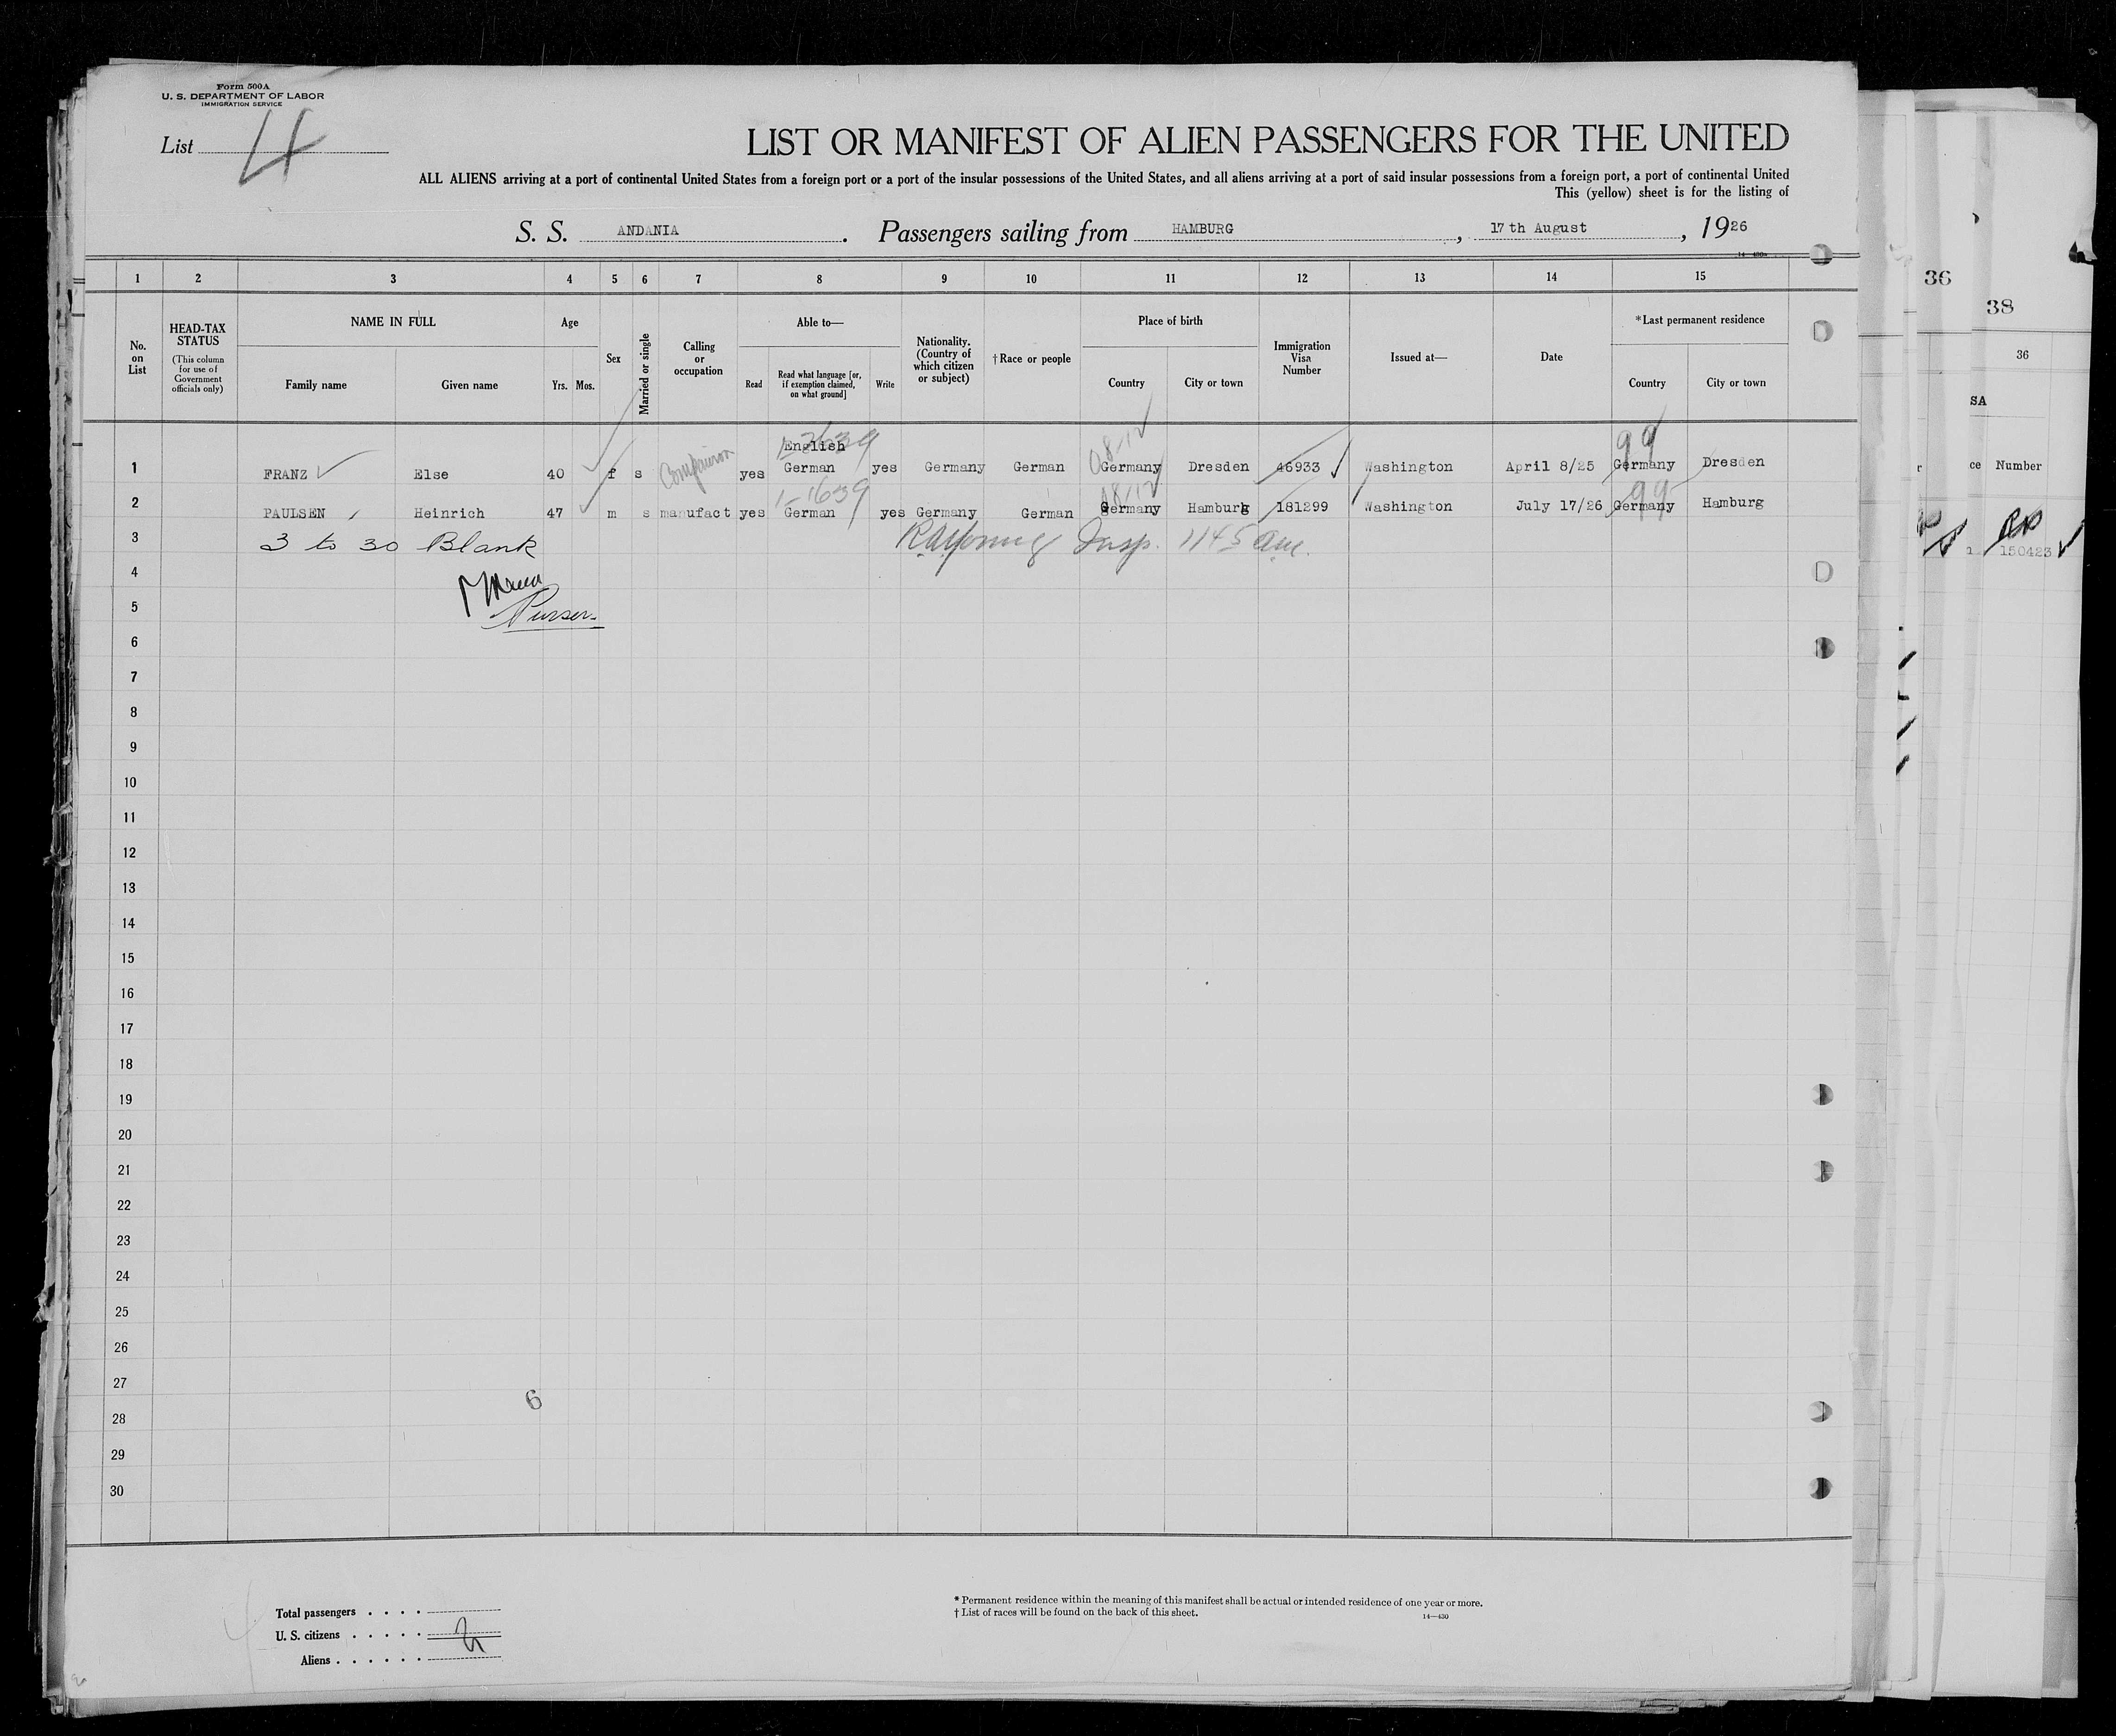 Form 500A
U. S. DEPARTMENT OF LABOR
IMMIGRATION SERVICE
List 4
LIST OR MANIFEST OF ALIEN PASSENGERS FOR THE UNITED
ALL ALIENS arriving at a port of continental United States from a foreign port or a port of the insular possessions of the United States, and all aliens arriving at a port of said insular possessions from a foreign port, a port of continental United
This (yellow) sheet is for the listing of
S. S. ANDANIA. Passengers sailing from HAMBURG, 17th August, 1926
14—430a
1 2 3 4 5 6 7 8 9 10 11 12 13 14 15
No. on List
HEAD-TAX STATUS
(This column for use of Government officials only)
NAME IN FULL
Family name
Given name
Age
Yrs. Mos.
Sex
Married or single
Calling or occupation
Able to—
Read
Read what language [or, if exemption claimed, on what ground]
Write
Nationality. (Country of which citizen or subject)
†Race or people
Place of birth
Country
City or town
Immigration Visa Number
Issued at—
Date
*Last permanent residence
Country
City or town
1 FRANZ Else 40 f s Companion yes English German yes Germany German Germany Dresden 46933 Washington April 8/25 Germany Dresden
99
08/12
2 PAULSEN Heinrich 47 m s manufact yes German yes Germany German Germany Hamburg 181299 Washington July 17/26 Germany Hamburg
1-1639
08/12
99
3 3 to 30 Blank Insp. 1145 am.
4
Purser
5
6
7
8
9
10
11
12
13
14
15
16
17
18
19
20
21
22
23
24
25
26
27
6
28
29
30
Total passengers
U. S. citizens
Aliens
2
* Permanent residence within the meaning of this manifest shall be actual or intended residence of one year or more.
† List of races will be found on the back of this sheet.
14—430
36
38
36
SA
ce Number
150423